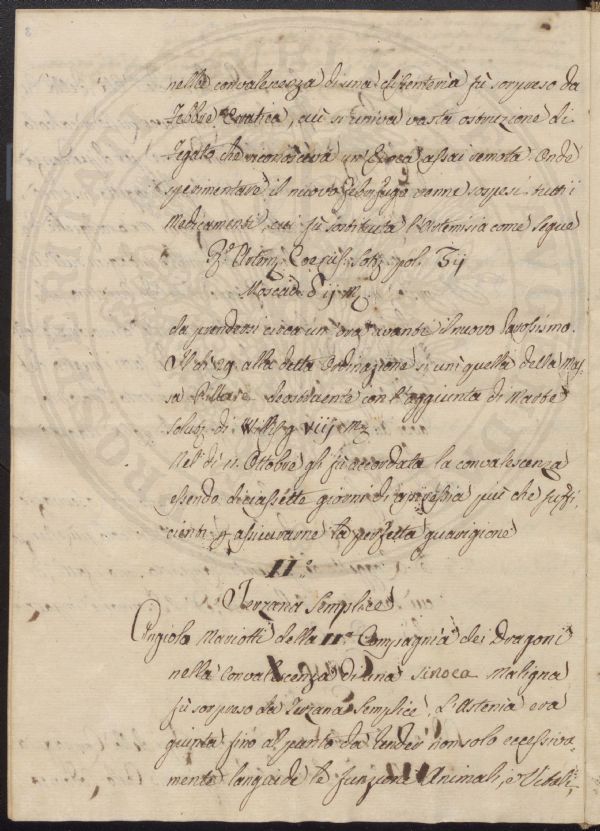 nella convalescenza di una dissenteria fù sorpreso da
Febbre Erratica, cui si univa vasta ostruzione di
Fegato che riconosceva un Epoca assai remota. Onde
sperimentare il nuovo Febrifugo vennersospesi tutti i
Medicamenti, cui fù sostituita l'Artemisia come segue
pol. Ʒij
Moscad. ij
da prendersi circa un'ora avanti il nuovo Parosismo.
Il dì 29. alla detta Ordinazione si unì quella della Mas-
sa Pillare deostruente con l'aggiunta di Marte
solub. di Will g. viij
Nel dì 11. Ottobre gli fù accordata la convalescenza
essendo diciassette giorni di apiressia più che suffi-
cienti p assicurarne la perfetta guarigione
II.
Terzana Semplice
Angiolo Mariotti della IIa. Compagnia dei Dragoni
nella Convalescenza di una Sinoca Maligna
fù sorpreso da Terzana Semplice. L'Astenia era
giunta fino al punto da render non solo eccessiva-
mente languide le funzioni Animali, e Vitali,